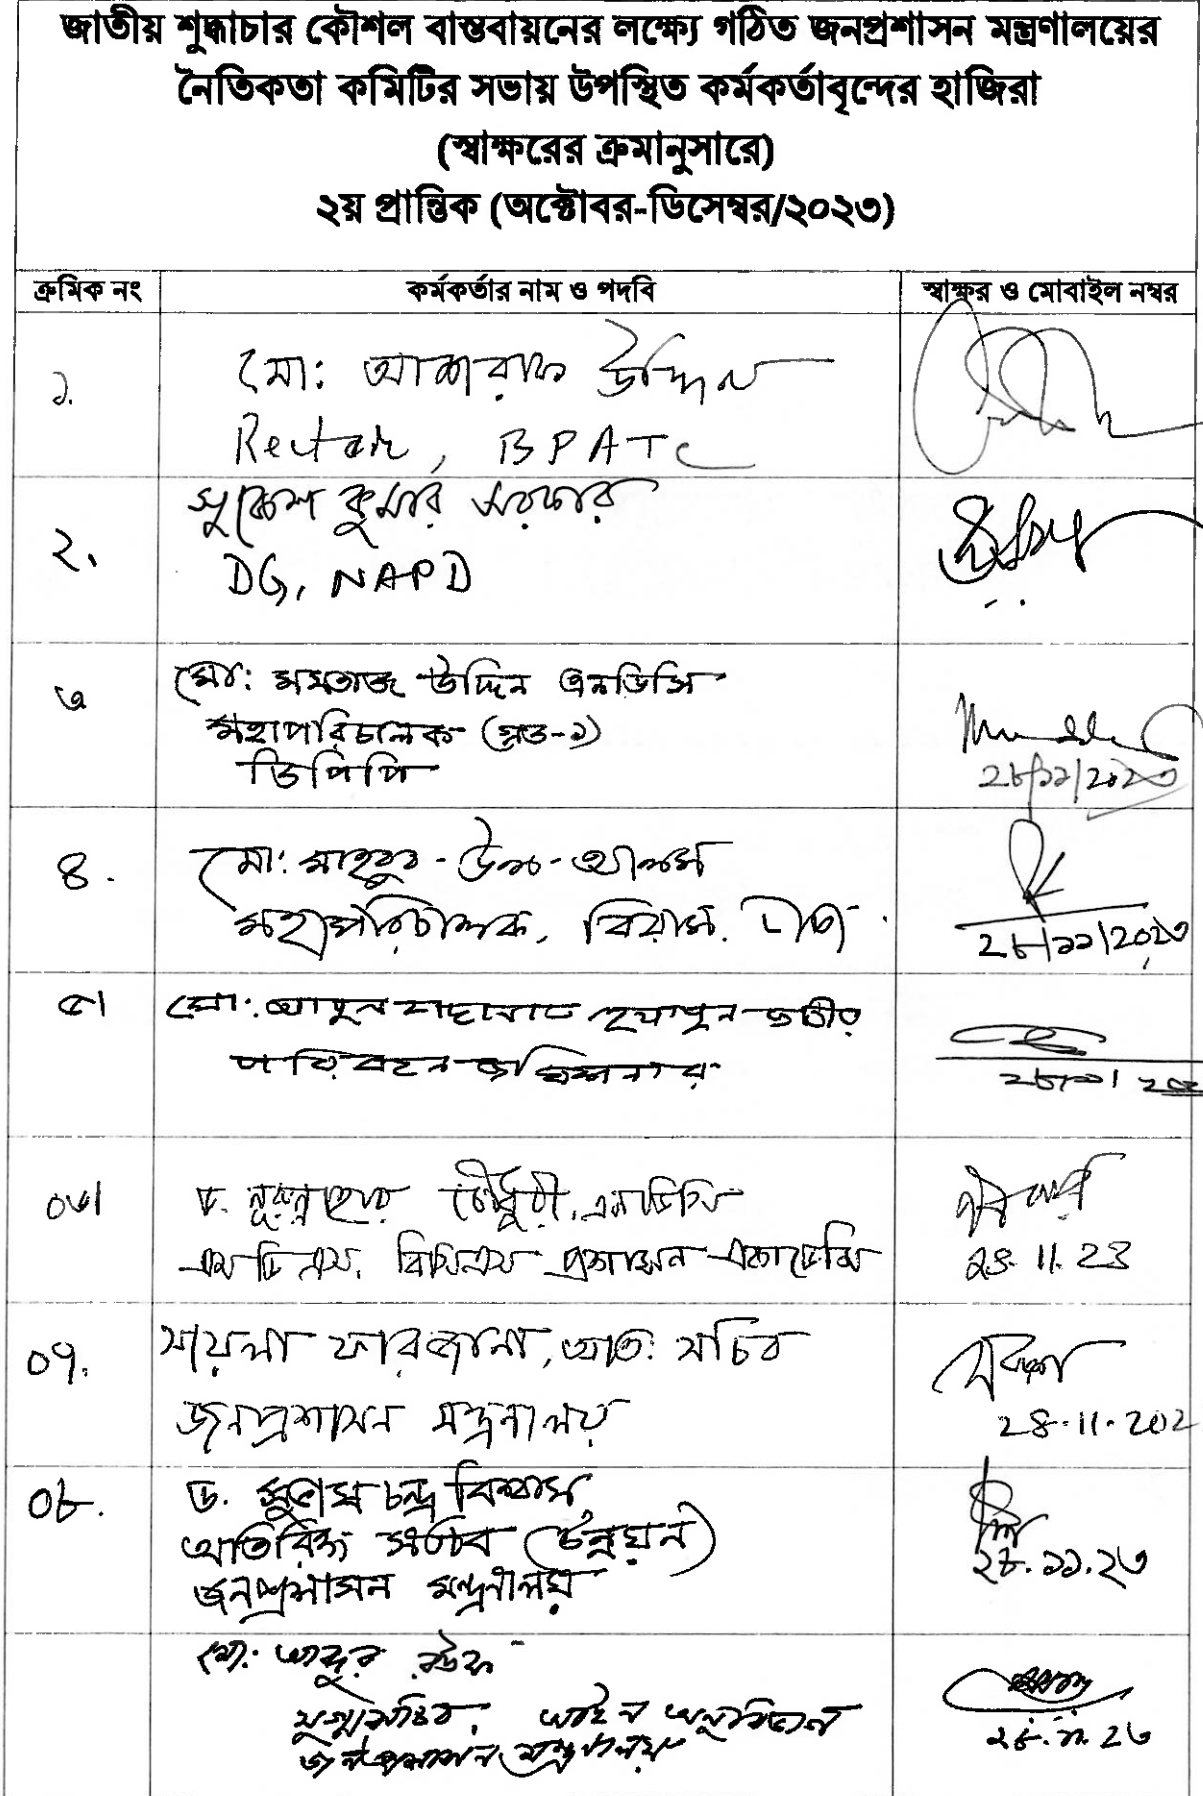 জাতীয় শুদ্ধাচার কৌশল বাস্তবায়নের লক্ষ্যে গঠিত জনপ্রশাসন মন্ত্রণালয়ের
নৈতিকতা কমিটির সভায় উপস্থিত কর্মকর্তাবৃন্দের হাজিরা
(স্বাক্ষরের ক্রমানুসারে)
২য় প্রান্তিক (অক্টোবর-ডিসেম্বর/২০২৩)
ক্রমিক নং কর্মকর্তার নাম ও পদবি স্বাক্ষর ও মোবাইল নম্বর
১. মো: আশরাফ উদ্দিন
Rector, BPATC
২. সুকেশ কুমার সরকার
DG, NAPD
৩ মো: মমতাজ উদ্দিন এনডিসি
মহাপরিচালক (গ্রেড-১)
ডিপিপি
২৮/১১/২০২৩
৪. মো: মাহবুব-উল-আলম
মহাপরিচালক, বিয়াম.
২৮/১১/২০২৩
৫। মো:
পরিবহন কমিশনার
০৬। ড. চৌধুরী, এনডিসি
এমডিএস, বিসিএস প্রশাসন একাডেমি
28.11.23
০৭. সায়লা ফারজানা, অতি: সচিব
জনপ্রশাসন মন্ত্রনালয়
28.11.202
০৮. ড. চন্দ্র বিশ্বাস,
অতিরিক্ত সচিব (উন্নয়ন)
জনপ্রশাসন মন্ত্রনালয়
২৮.১১.২৩
মো: আব্দুর রউফ
যুগ্মসচিব, আইন অনুবিভাগ
জনপ্রশাসন মন্ত্রণালয়
২৮.১১.২৩